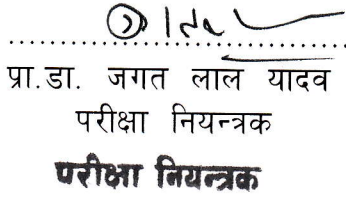 प्रा.डा. जगत लाल यादव
परीक्षा नियन्त्रक
परीक्षा नियन्त्रक